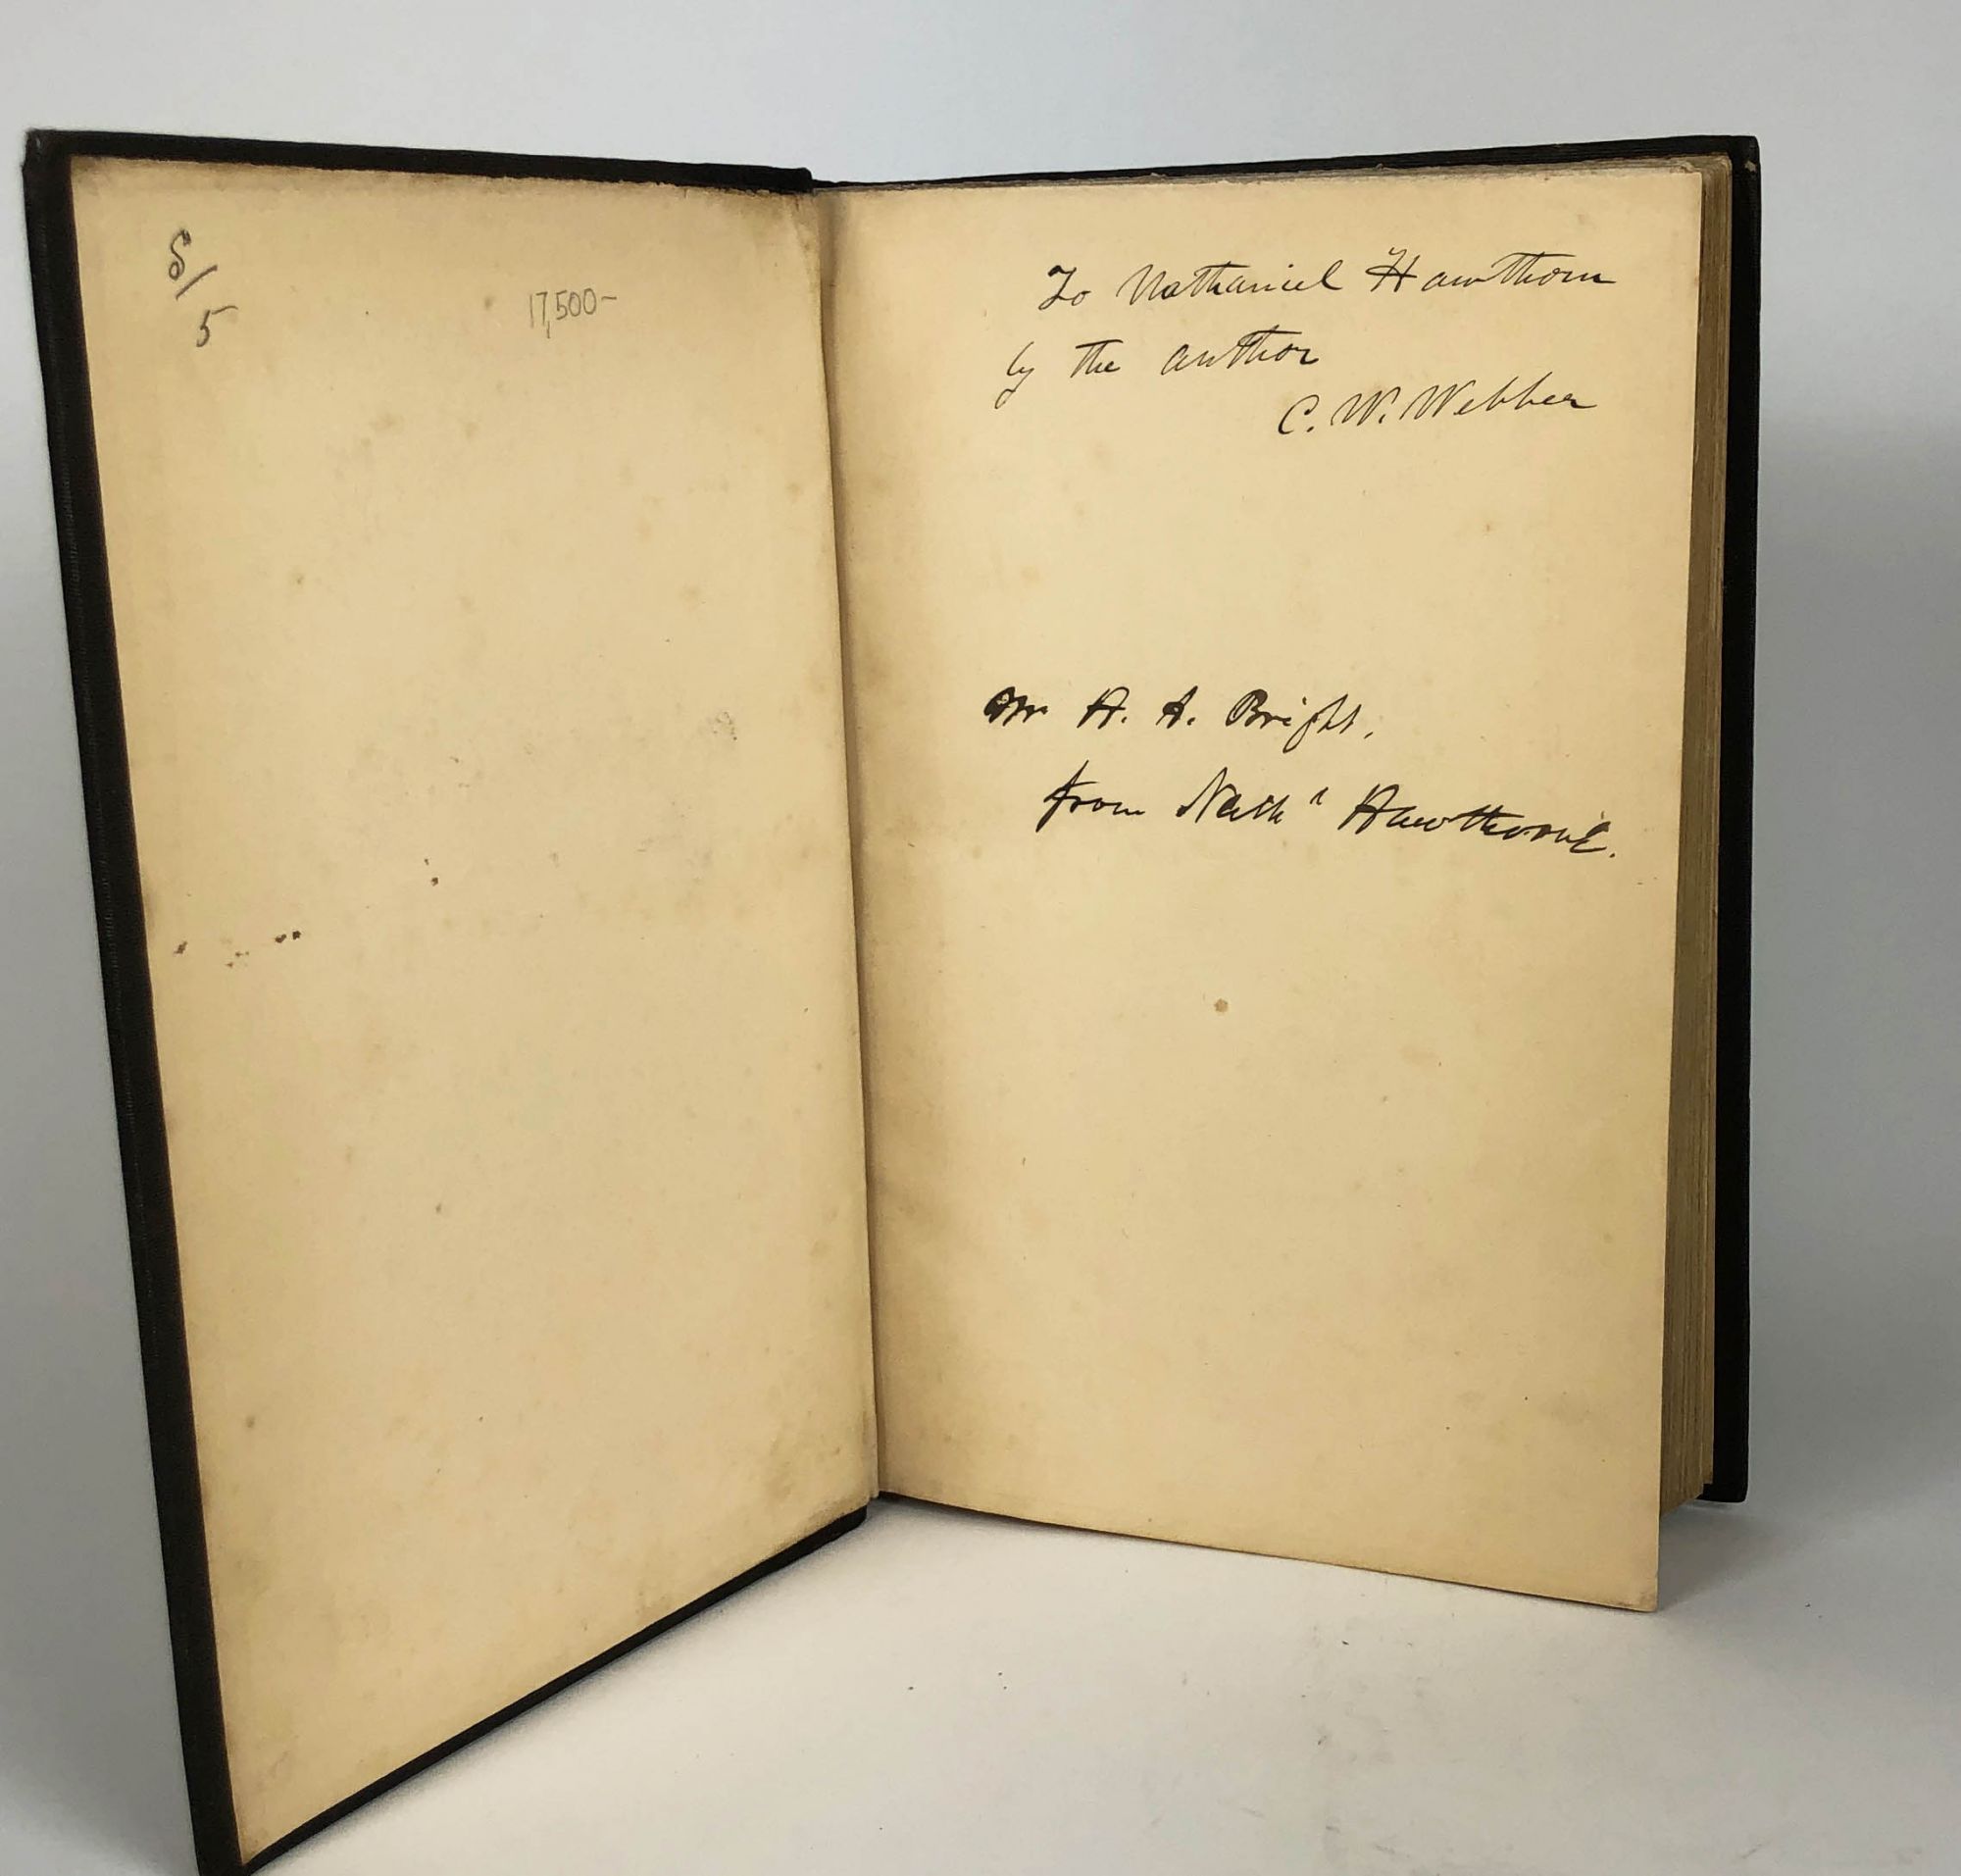 8/
5
17,500-
To Nathaniel Hawthorn
by the author
C. W. Webber
Mr H. A. Bright,
from Nathl Hawthorne.